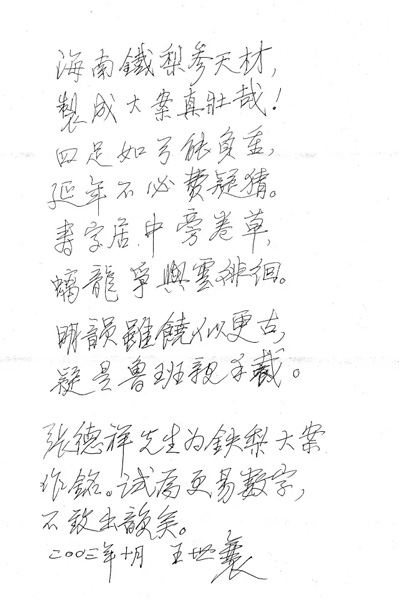 海南鐵梨參天材,
製成大案真壯哉!
四足如弓能負重,
延年不必費疑猜。
壽字居中旁卷草,
螭龍爭與雲徘徊。
明韻雖饒似更古,
疑是魯班親手裁。
張德祥先生为鉄梨大案
作銘。试為更易數字,
不致出韻矣。
二〇〇三年十月 王世襄